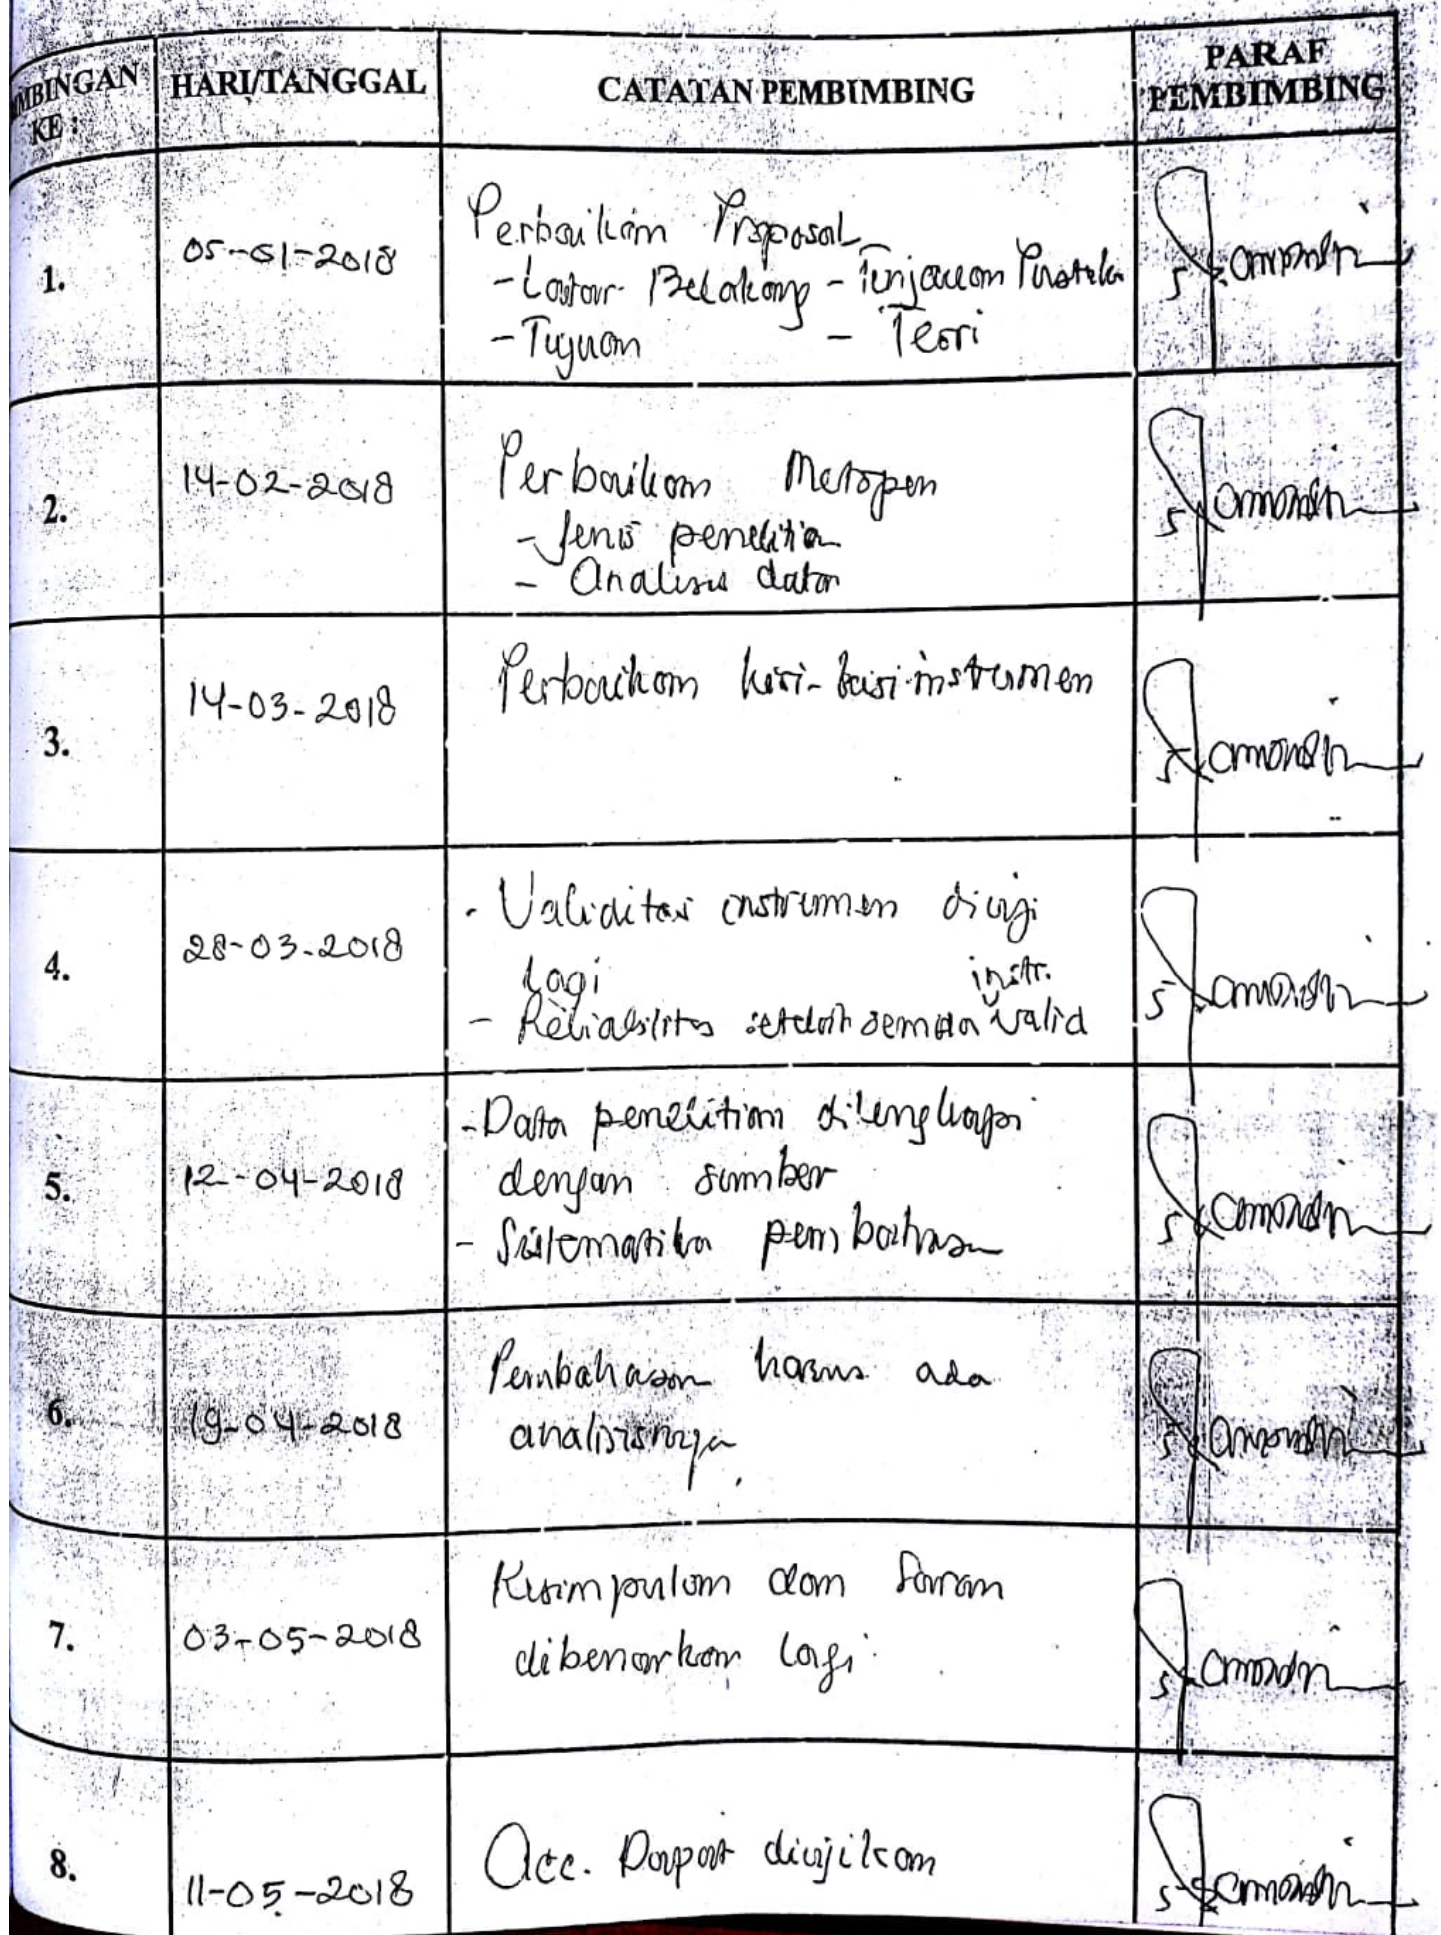 MBINGAN KE :
HARI/TANGGAL
CATATAN PEMBIMBING
PARAF PEMBIMBING
1.
05-01-2018
Perbaikan Proposal
- Latar Belakang - Tinjauan Pustaka
- Tujuan - Teori
2.
14-02-2018
Perbaikan Metopen
- Jenis penelitian
- Analisis data
3.
14-03-2018
Perbaikan kisi-kisi instrumen
4.
28-03-2018
- Validitas instrumen diuji
lagi
instr.
- Reliabilitas setelah semua valid
5.
12-04-2018
- Data penelitian dilengkapi
dengan sumber
- Sistematika pembahasan
6.
19-04-2018
Pembahasan harus ada
analisisnya
7.
03-05-2018
Kesimpulan dan Saran
dibenarkan lagi
8.
11-05-2018
Acc. Dapat diujikan